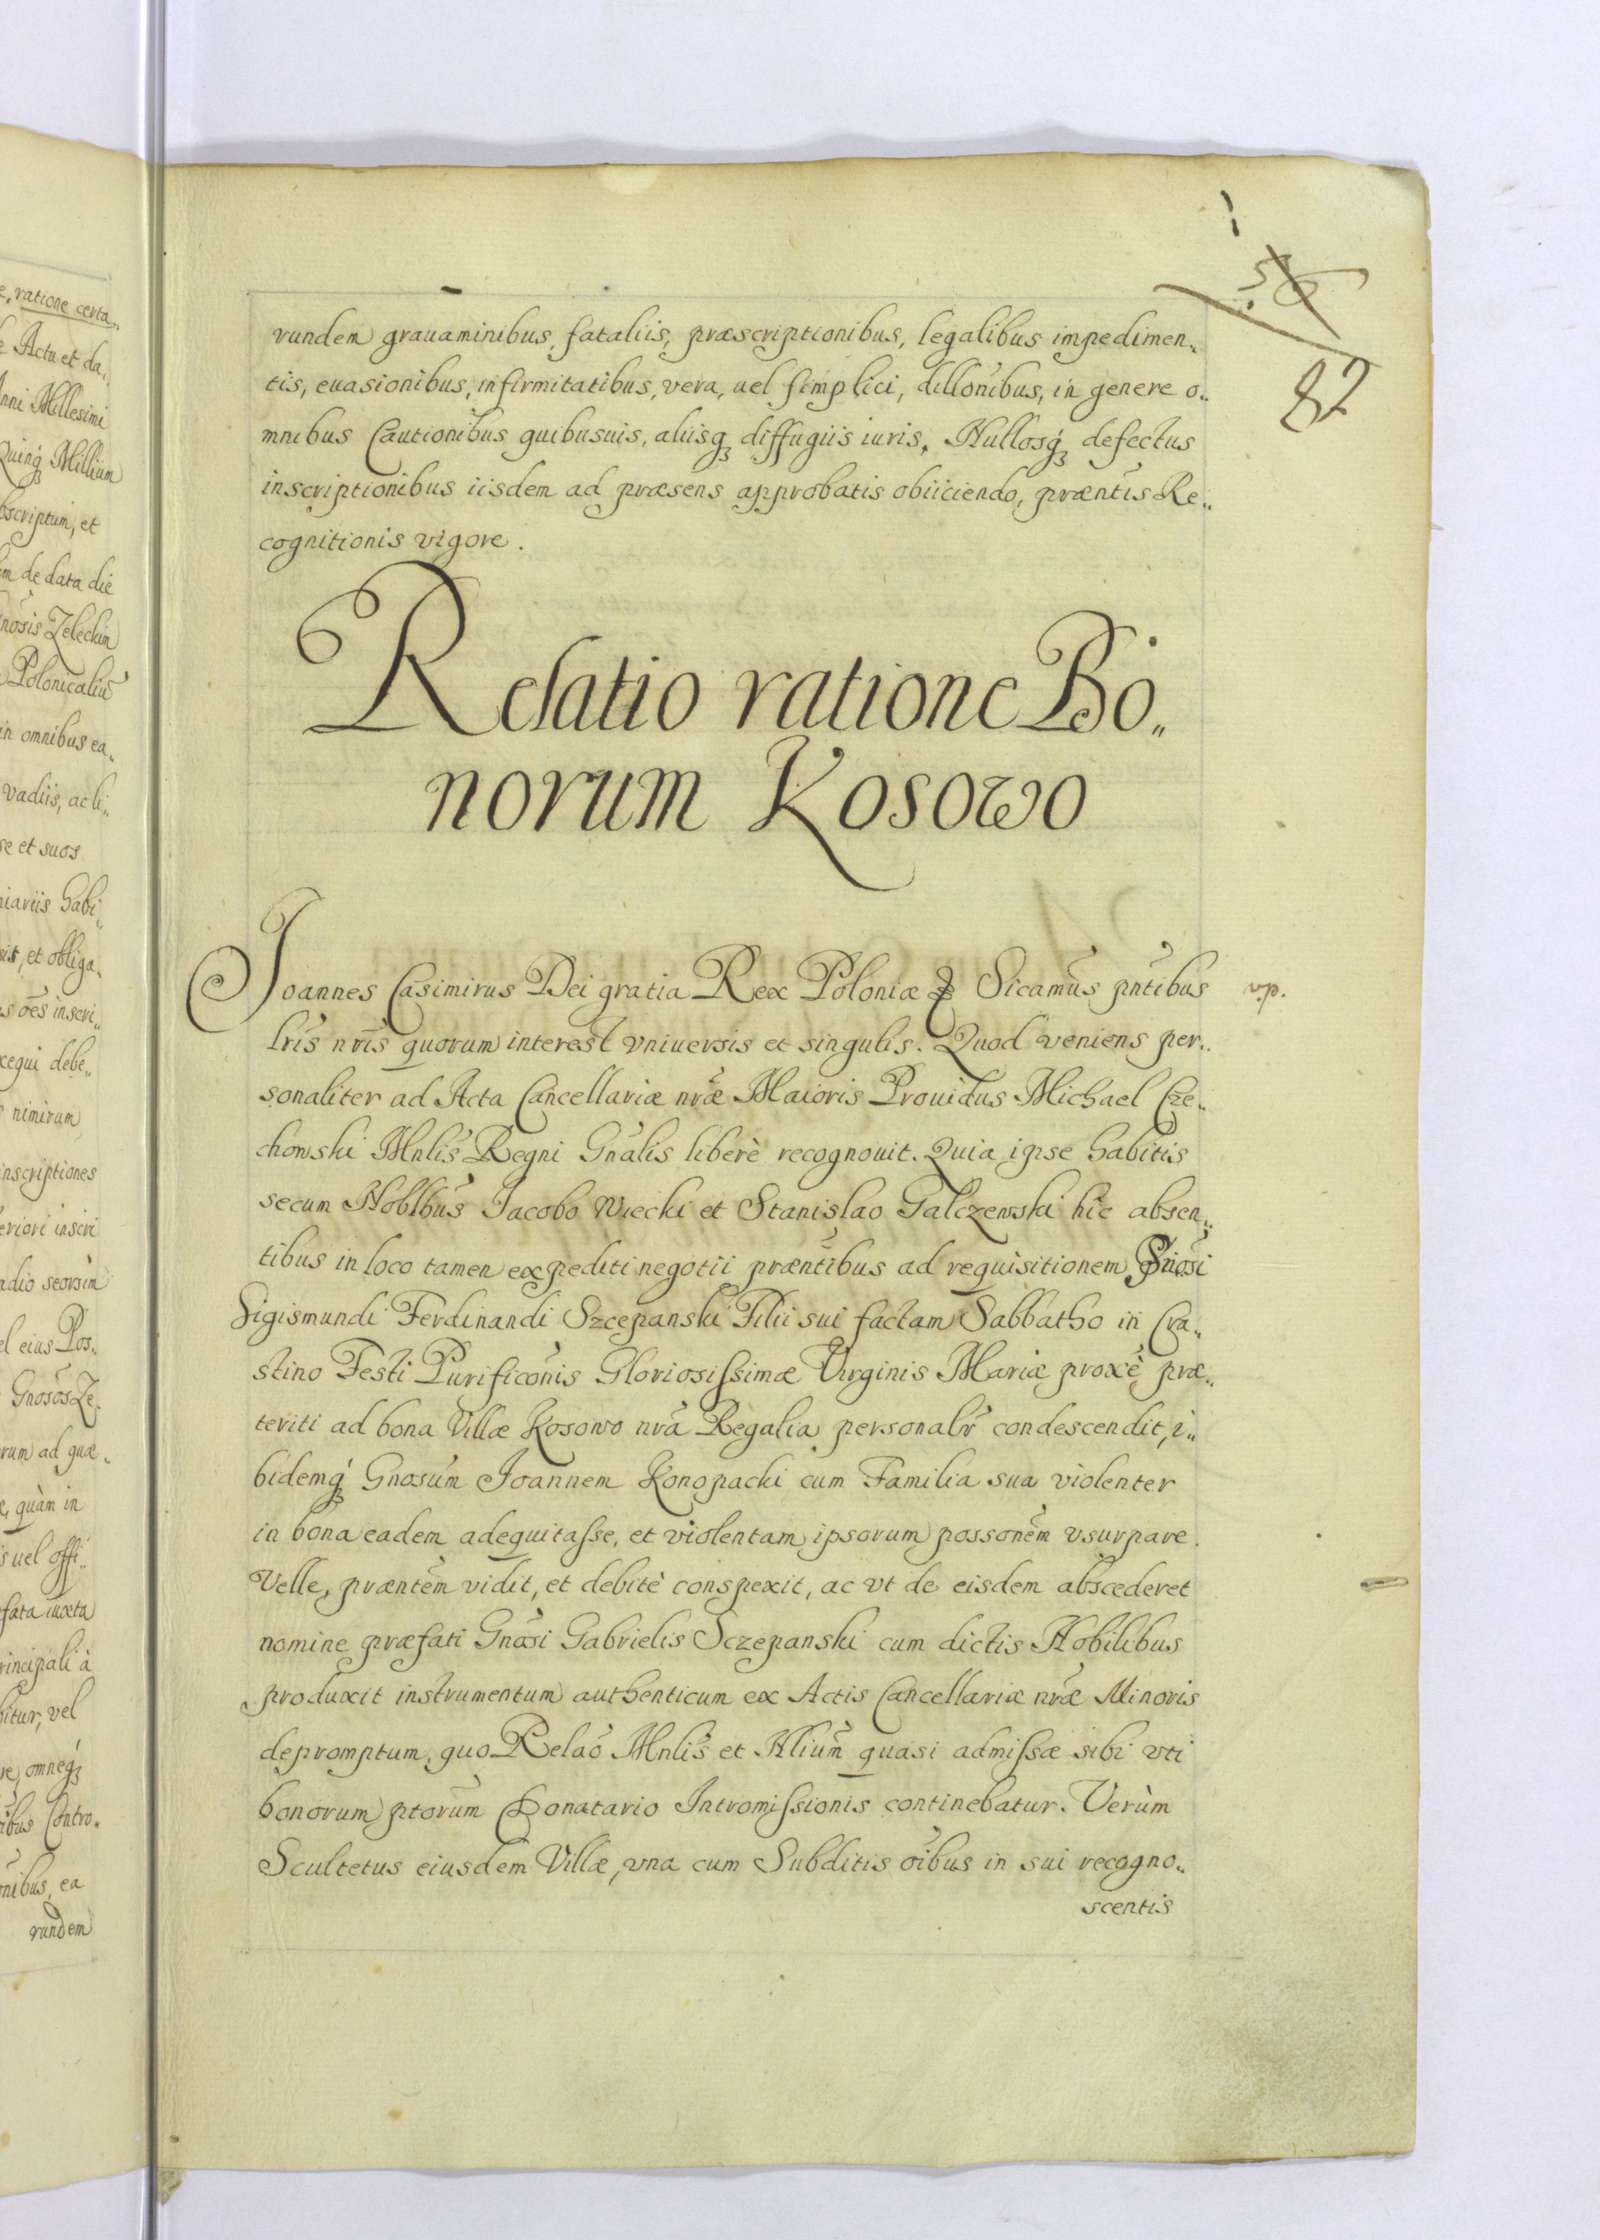 56
82
rundem grauaminibus, fataliis, præscriptionibus, legalibus impedimen„
tis, euasionibus, infirmitatibus, vera, uel simplici, dillõnibus, in genere o„
mnibus Cautionibus quibusuis, aliisq₃ diffugiis iuris, Nullosq₃ defectus
inscriptionibus iisdem ad præsens approbatis obiiciendo, præntis Re„
cognitionis vigore.
Relatio ratione Bo„
norum Kosowo
Joannes Casimirus Dei gratia Rex Poloniæ & Sicamus pñtibus
vp.
Lris nris quorum interest vniuersis et singulis. Quod veniens per„
sonaliter ad Acta Cancellariæ nræ Maioris Prouidus Michael Cze„
chowski Mnlis Regni Gnalis liberè recognouit. Quia ipse habitis
secum Noblbus Jacobo Wiecki et Stanislao Galczewski hic absen„
tibus in loco tamen expediti negotii præntibus ad requisitionem Gnosi
Sigismundi Ferdinandi Szczepanski Filii sui factam Sabbatho in Cra„
stino Festi Purificõnis Gloriosissimæ Virginis Mariæ proxè præ„
teriti ad bona Villæ Kosowo nra Regalia personalr condescendit, i„
bidemq₃ Gnosum Joannem Konopacki cum Familia sua violenter
in bona eadem adequitasse, et violentam ipsorum possonem vsurpare
Velle, præntem vidit, et debitè conspexit, ac vt de eisdem abscederet
nomine præfati Gnosi Gabrielis Sczepanski cum dictis Nobilibus
produxit instrumentum authenticum ex Actis Cancellariæ nræ Minoris
depromptum, quo Relaõ Mnlis et Nlium quasi admissæ sibi vti
bonorum ptorum Donatario Intromissionis continebatur. Verùm
Scultetus eiusdem Villæ, vna cum Subditis oibus in sui recogno„
scentis
e, ratione certa„
Actu et da„
Anni Millesimi
Quinq₃ Millium
bscriptum, et
m de data die
nosis Zeleckim
Polonicalius
in omnibus ea„
vadiis, ac li„
se et suos
niariis habi„
sit, et obliga„
s oes inscri„
xequi debe„
s nimirum
inscriptiones
eriori inscri
adio seorsim
el eius Pos„
Gnosos Ze„
rum ad quæ„
e, quàm in
s uel offi„
fata iuxta
rincipali à
bitur, vel
re, omneq₃
ibus Contro„
onibus, ea
rundem